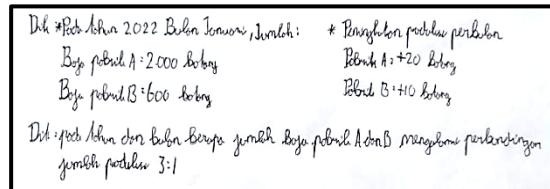 Dik *Pada tahun 2022 Bulan Januari, Jumlah:
Baja pabrik A: 2.000 batang
Baja pabrik B: 600 batang
* Peningkatan produksi perbulan
Pabrik A: +20 batang
Pabrik B: +10 batang
Dit: pada tahun dan bulan berapa jumlah Baja pabrik A dan B mengalami perbandingan
jumlah produksi 3:1